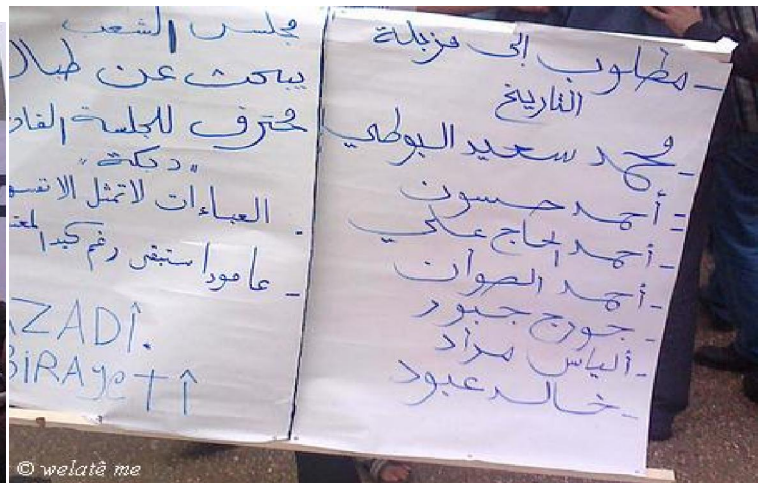 - مطلوب إلى مزبلة
التاريخ
- محمد سعيد البوطي
- أحمد حسون
- أحمد الحاج علي
- أحمد الصوان
- جورج جبور
- ألياس مراد
- خالد عبود
مجلس الشعب
يبحث عن طبال
محترف للجلسة القاد
"دبكة"
. العباءات لا تمثل الا نفسه
- عامودا ستبقى رغم كيد المعتد
AZADÎ.
BiRAyeTÎ
© welatê me